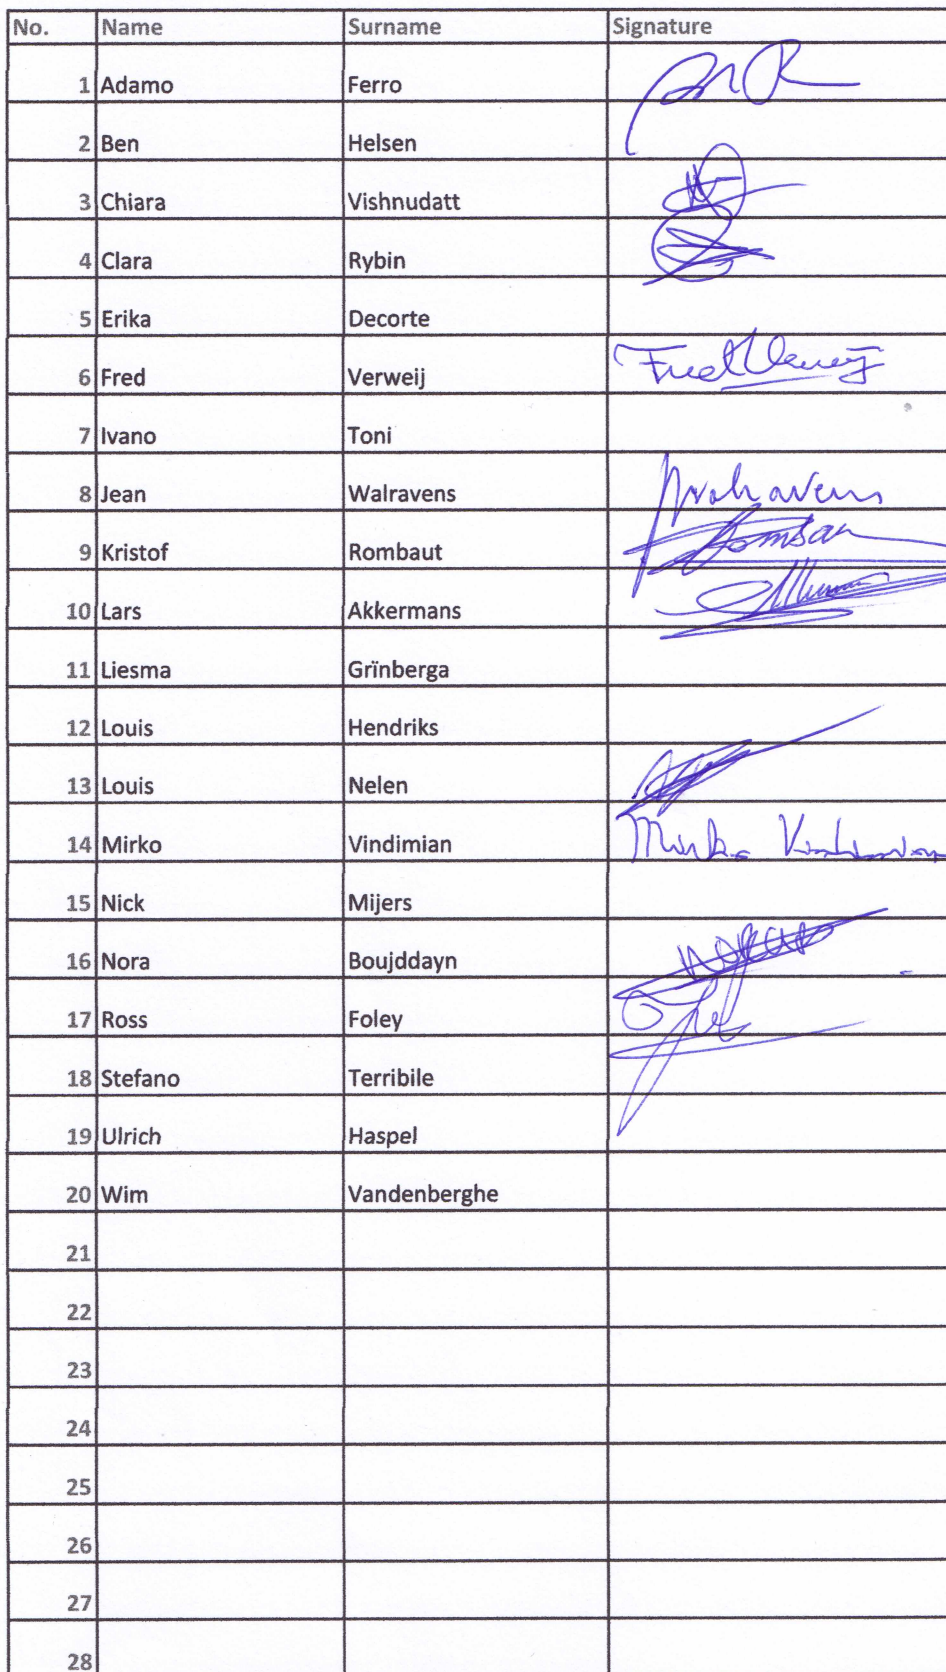 No. Name Surname Signature
1 Adamo Ferro
2 Ben Helsen
3 Chiara Vishnudatt
4 Clara Rybin
5 Erika Decorte
6 Fred Verweij Fred Verweij
7 Ivano Toni
8 Jean Walravens Walravens
9 Kristof Rombaut
10 Lars Akkermans
11 Liesma Grïnberga
12 Louis Hendriks
13 Louis Nelen
14 Mirko Vindimian Mirko Vindimian
15 Nick Mijers
16 Nora Boujddayn
17 Ross Foley
18 Stefano Terribile
19 Ulrich Haspel
20 Wim Vandenberghe
21
22
23
24
25
26
27
28